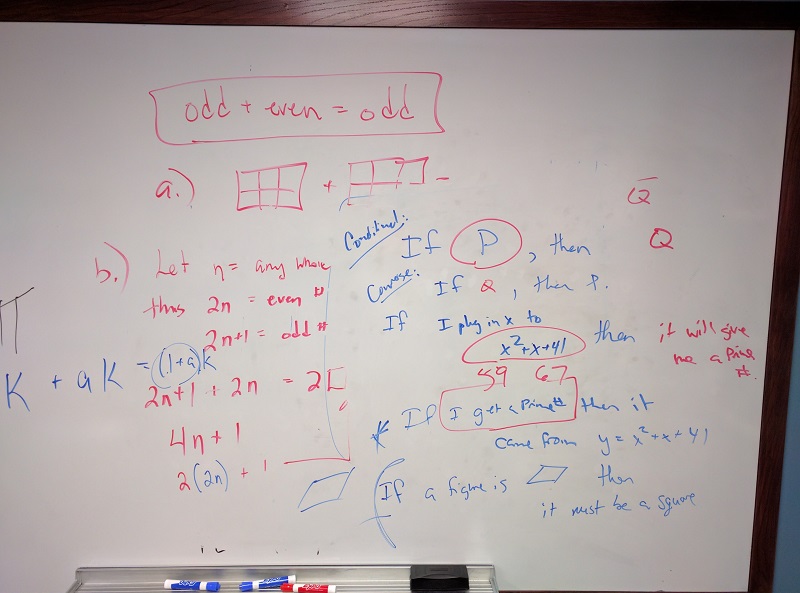 odd + even = odd
a.) + –
Q
b.) Let n = any whole
thus 2n = even #
2n+1 = odd #
K + aK = (1+a)K
2n+1 + 2n = 2[
4n + 1
2(2n) + 1
If P, then Q
If Q, then P.
If I plug in x to
x²+x+41 then it will give
me a Prime
#.
59 67
* If I get a Prime # then it
came from y = x²+x+41
If a figure is then
it must be a square